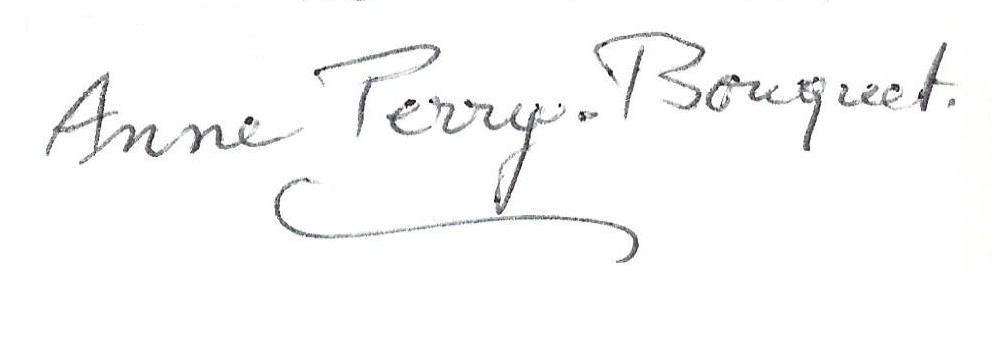 Anne Perry-Bouquet.